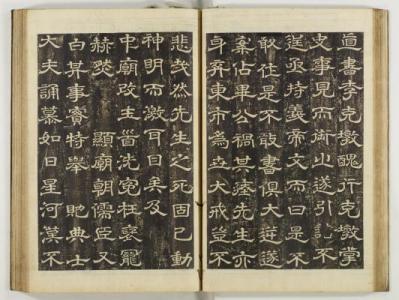 直書李克墩醜行克墩掌
史事見而銜之遂引 不
逞 持義帝文而曰是不
敢 是不敢書俱大逆遂
案佔畢公禍其瘞先生亦
身弃東市爲世大戒豈不
悲哉然先生之死固已動
神明而激耳目矣及
中廟改玉首洗冤枉褒寵
赫然 顯廟朝儒臣又
白其事 特舉 貤典士
大夫誦慕如日星河漢不